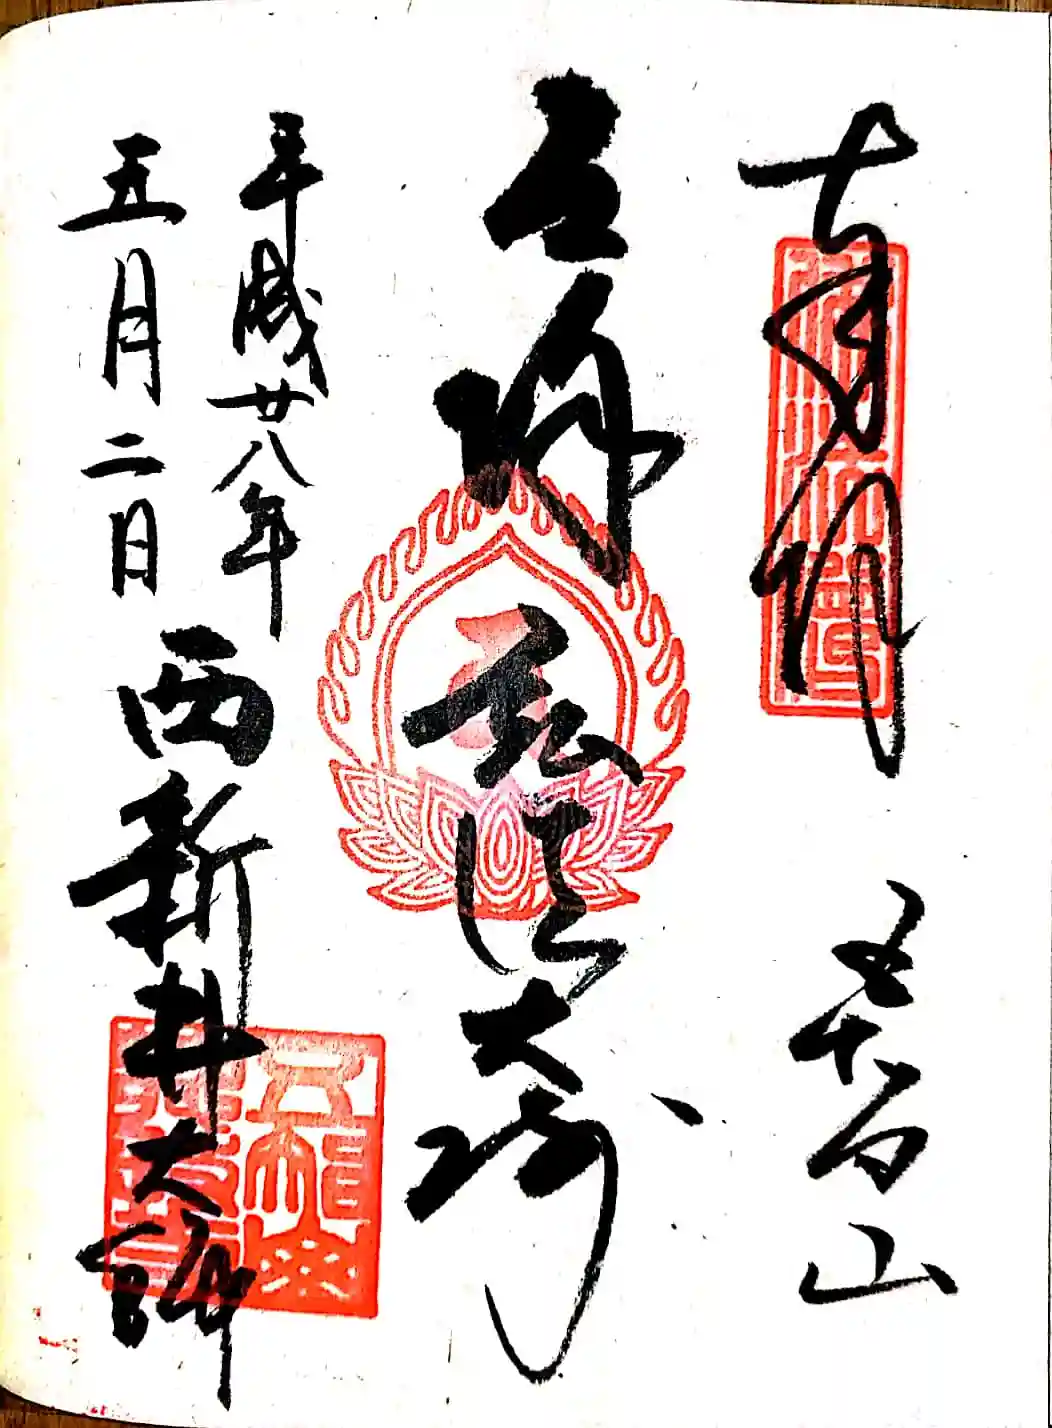 奉拝 五智山
厄除 弘法大師
平成廿八年
五月二日 西新井大師